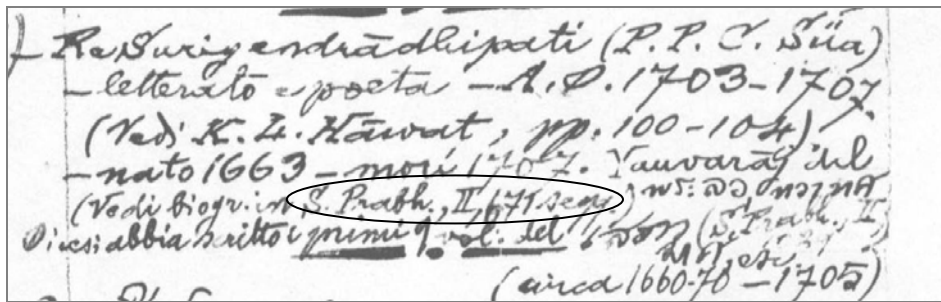 Re Suriyendrādhipati (P. P. C. Süa)
– letterato e poeta – A.D. 1703–1707.
(Vedi K. L. Hāwat, pp. 100–104)
– nato 1663 – morì 1707. Yauvarāj del
(Vedi biogr. in S. Prabh., II, 671 segs.)
Dicesi abbia scritto i primi 9 vol. del (S. Prabh., II,
(circa 1660-70 – 1705)